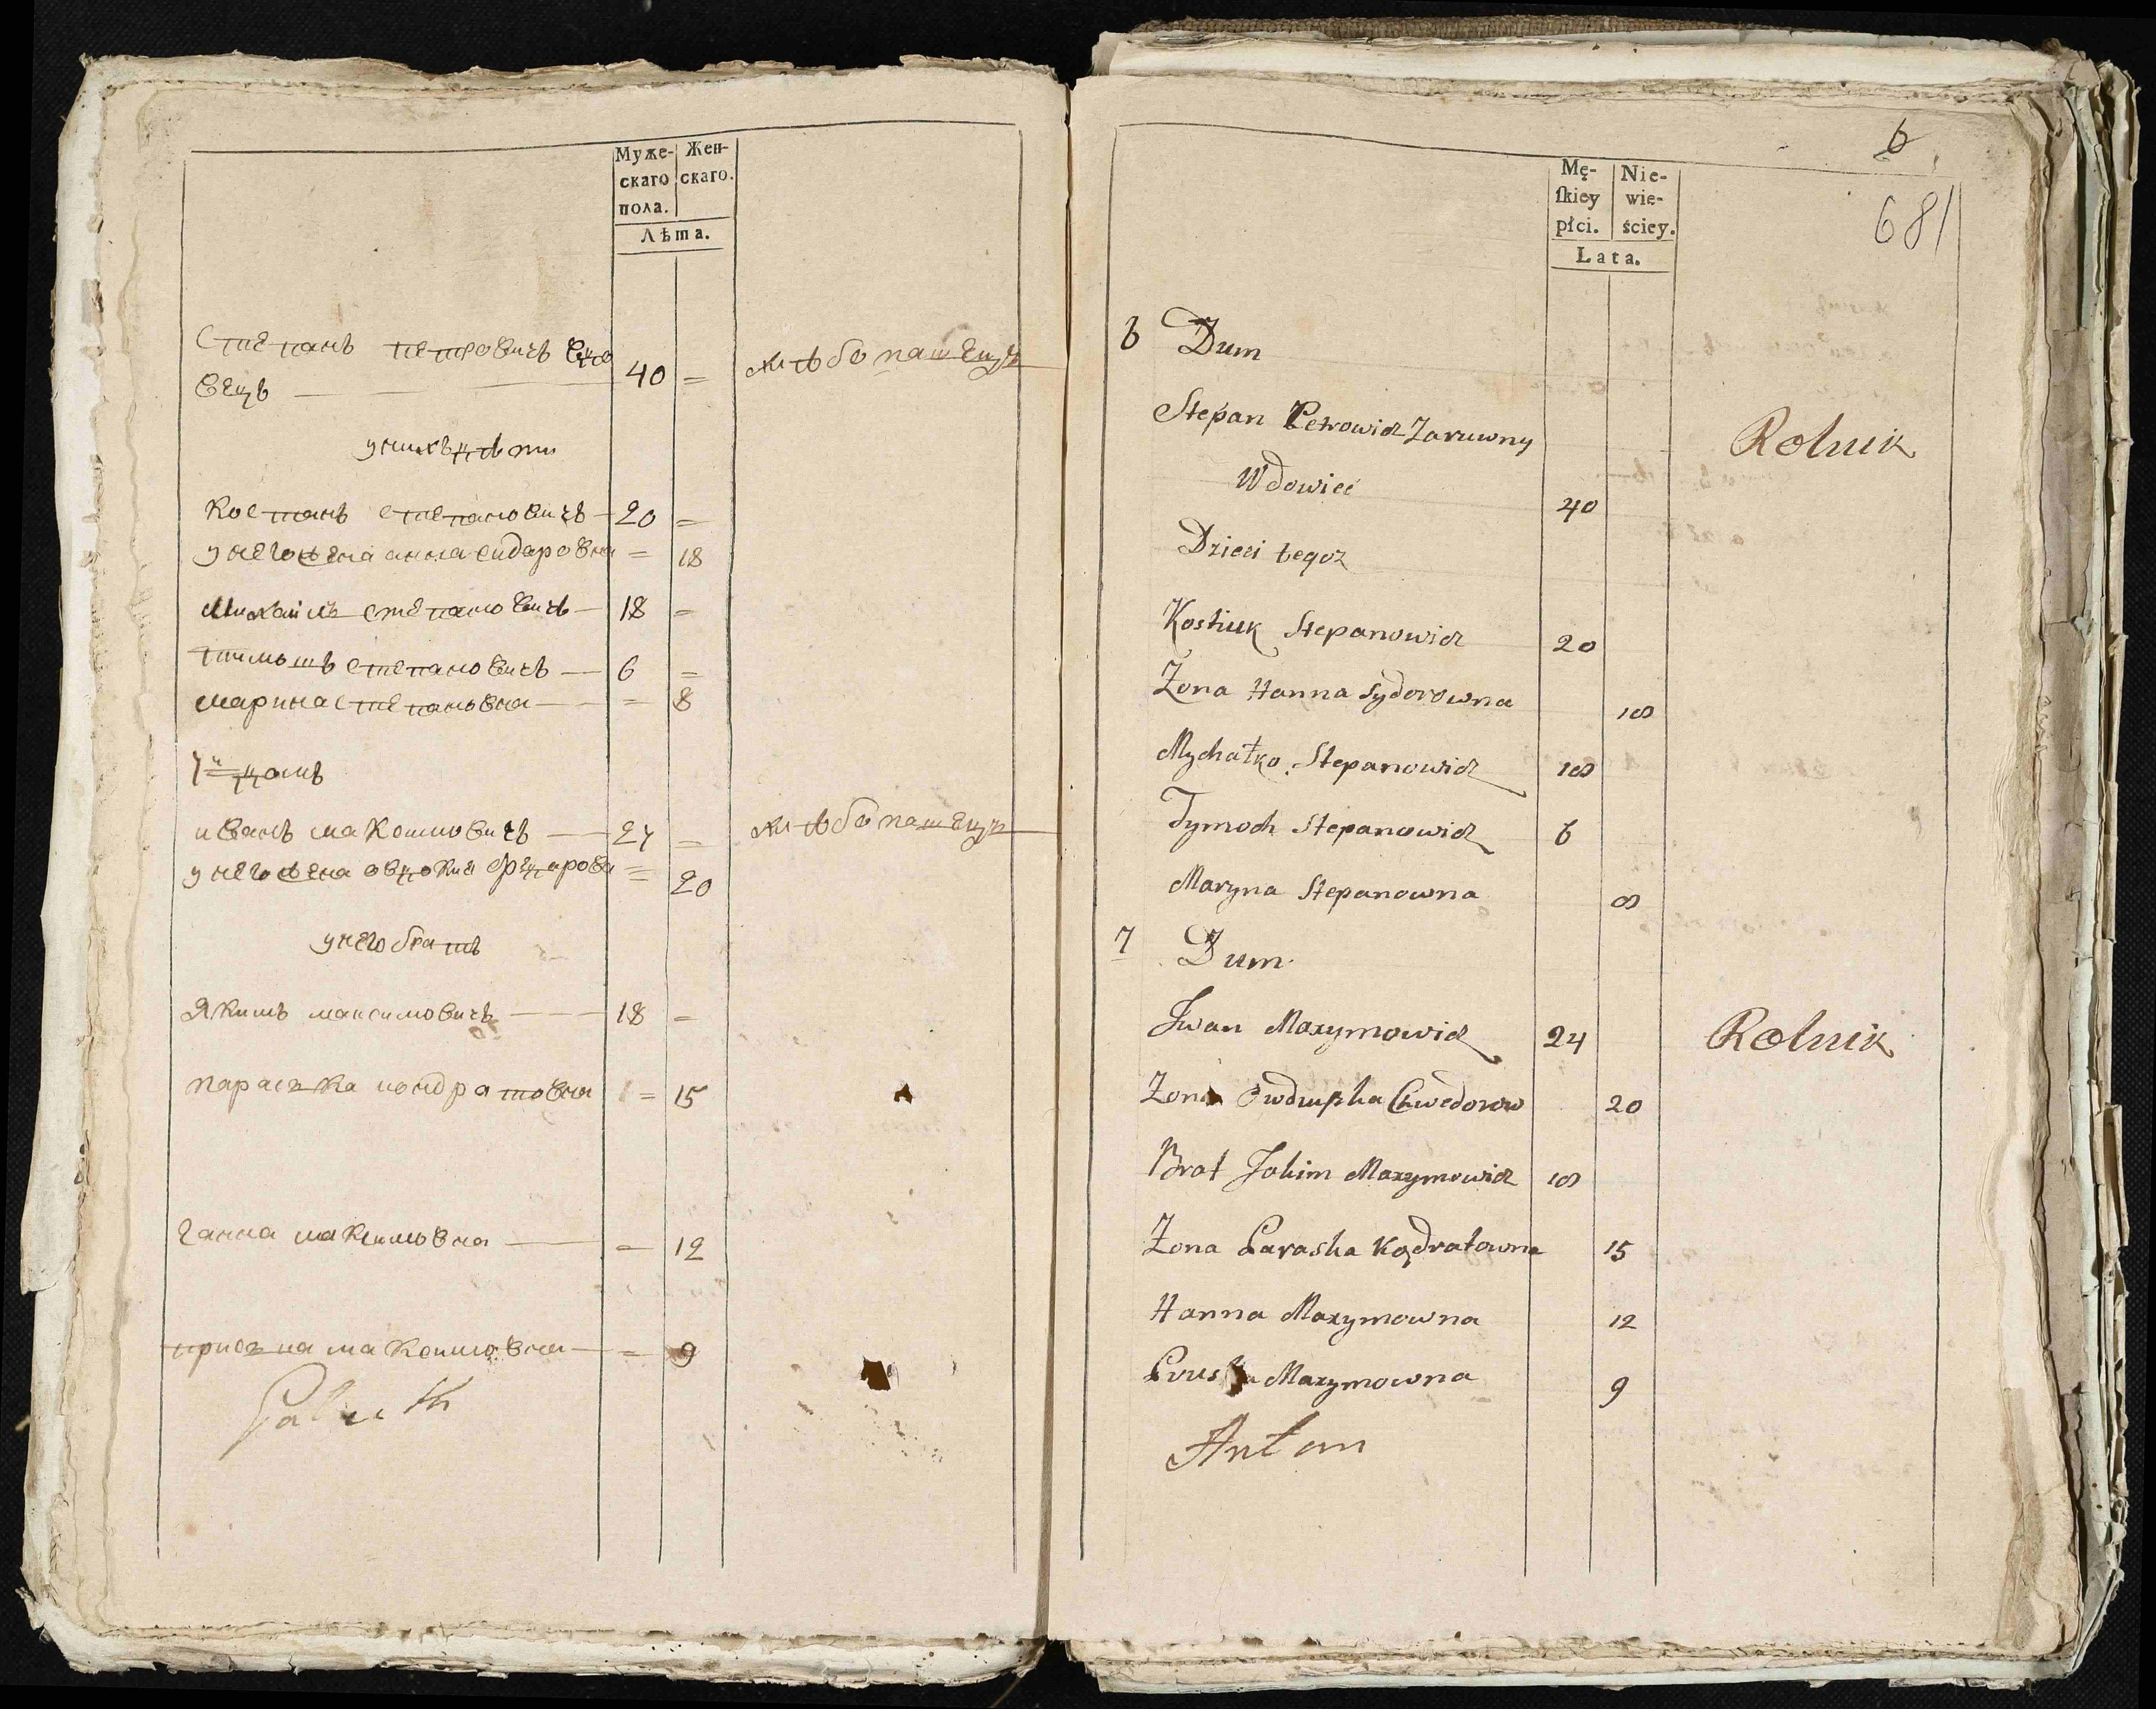 Муже-
скаго
пола.
Жен-
скаго.
Лѣта.
Степанъ петровичъ вдо
вецъ 40 = хлѣбопашецъ
унихъ дѣти
костанъ степановичъ 20 =
унего жена анна сидаровна = 18
михаилъ степановичъ 18 =
тимошъ степановичъ 6 =
марина степановна = 8
7й домъ
иванъ максимовичъ 24 = хлѣбопашецъ
унего жена овдокия = 20
унего братъ
Якимъ максимовичъ 18 =
параска кондратовна = 15
ганна максимовна = 12
максимовна = 9
Mę-
ſkiey
płci.
Nie-
wie-
ściey.
Lata.
6
681
6 Dum
Stepan Petrowicz Zaruwny Rolnik
Wdowiec 40
Dzieci tegoz
Kostiuk Stepanowicz 20
Zona Hanna Sydorowna 18
Mychałko Stepanowicz 18
Tymoch Stepanowicz 6
Maryna Stepanowna 8
7 Dum
Jwan Maxymowicz 24 Rolnik
Zona Chwedorow 20
Brat Jakim Maxymowicz 18
Zona Paraska Kądratowna 15
Hanna Maxymowna 12
Maxymowna 9
Anton